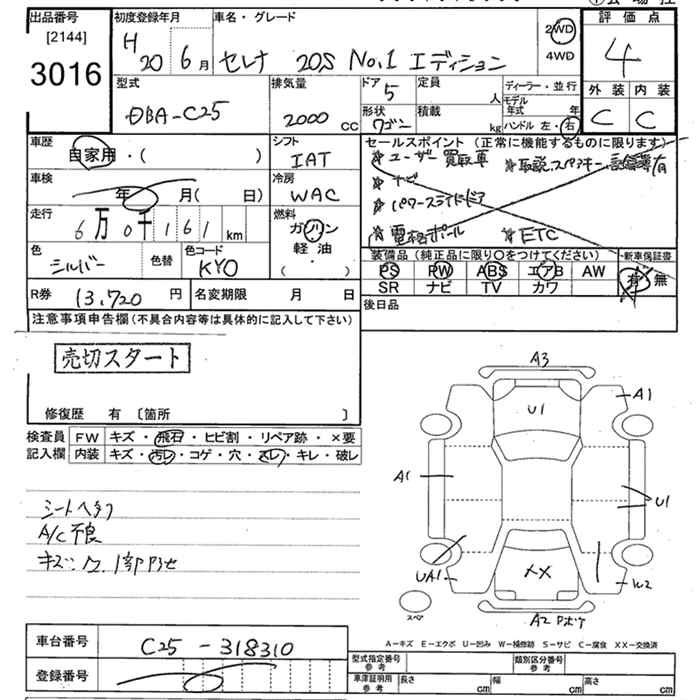 出品番号
[2144]
3016
初度登録年月
H 20 6月
車名・グレード
セレナ 20S No.1 エディション
2WD
4WD
評価点
4
外装 内装
C C
型式
DBA-C25
排気量
2000 CC
ドア
5
形状
ワゴン
定員
人
積載
kg
ディーラー・並行
モデル年式 年
ハンドル 左・右
車歴
自家用・( )
シフト
IAT
車検
年 月( 日)
冷房
WAC
走行
6万0千161 km
燃料
ガソリン
軽油
( ・ )
色
シルバー
色替
色コード
KY0
R券 13,720 円
名変期限 月 日
セールスポイント (正常に機能するものに限ります)
☆ユーザー買取車
☆取説スペアキー記録簿有
☆ナビ
☆パワースライドドア
☆電格ポール
☆ETC
装備品 (純正品に限り○をつけてください)
新車保証書
PS PW ABS エアB AW
有・無
SR ナビ TV カワ
後日品
注意事項申告欄(不具合内容等は具体的に記入して下さい)
売切スタート
修復歴 有 〔箇所 〕
検査員
記入欄
FW キズ・飛石・ヒビ割・リペア跡・×要
内装 キズ・汚レ・コゲ・穴・スレ・キレ・破レ
シートヘタリ
A/C不良
A3
U1
A1
A1
U1
UA1
XX
W2
スペア
A2
A-キズ E-エクボ U-凹み W-補修跡 S-サビ C-腐食 XX-交換済
車台番号
C25-318310
登録番号
型式指定番号
参考
類別区分番号
参考
車庫証明用
参考
長さ cm
幅 cm
高さ cm